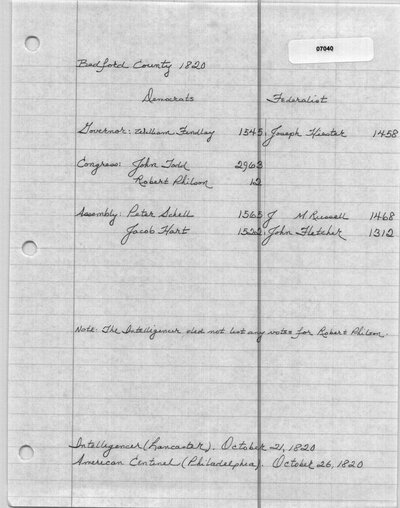 07040
Bedford County 1820
Democrats Federalist
Governor: William Findlay 1545 Joseph Hiester 1458
Congress: John Todd 2963
Robert Philson 12
Assembly: Peter Schell 1565 J M Russell 1468
Jacob Hart 1522 John Fletcher 1312
Note: The Intelligencer did not list any votes for Robert Philson.
Intelligencer (Lancaster). October 21, 1820
American Centinel (Philadelphia). October 26, 1820